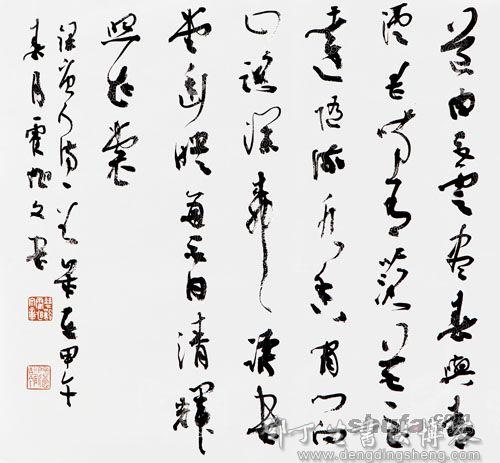 道由白雲盡春與青
溪長時有落花至
遠隨流水香閒門向
山路深柳讀書
堂幽映每白日清輝
照衣裳
錄唐人詩一首 歲在甲午
春月
邓丁生书法博客
www.dengdingsheng.com